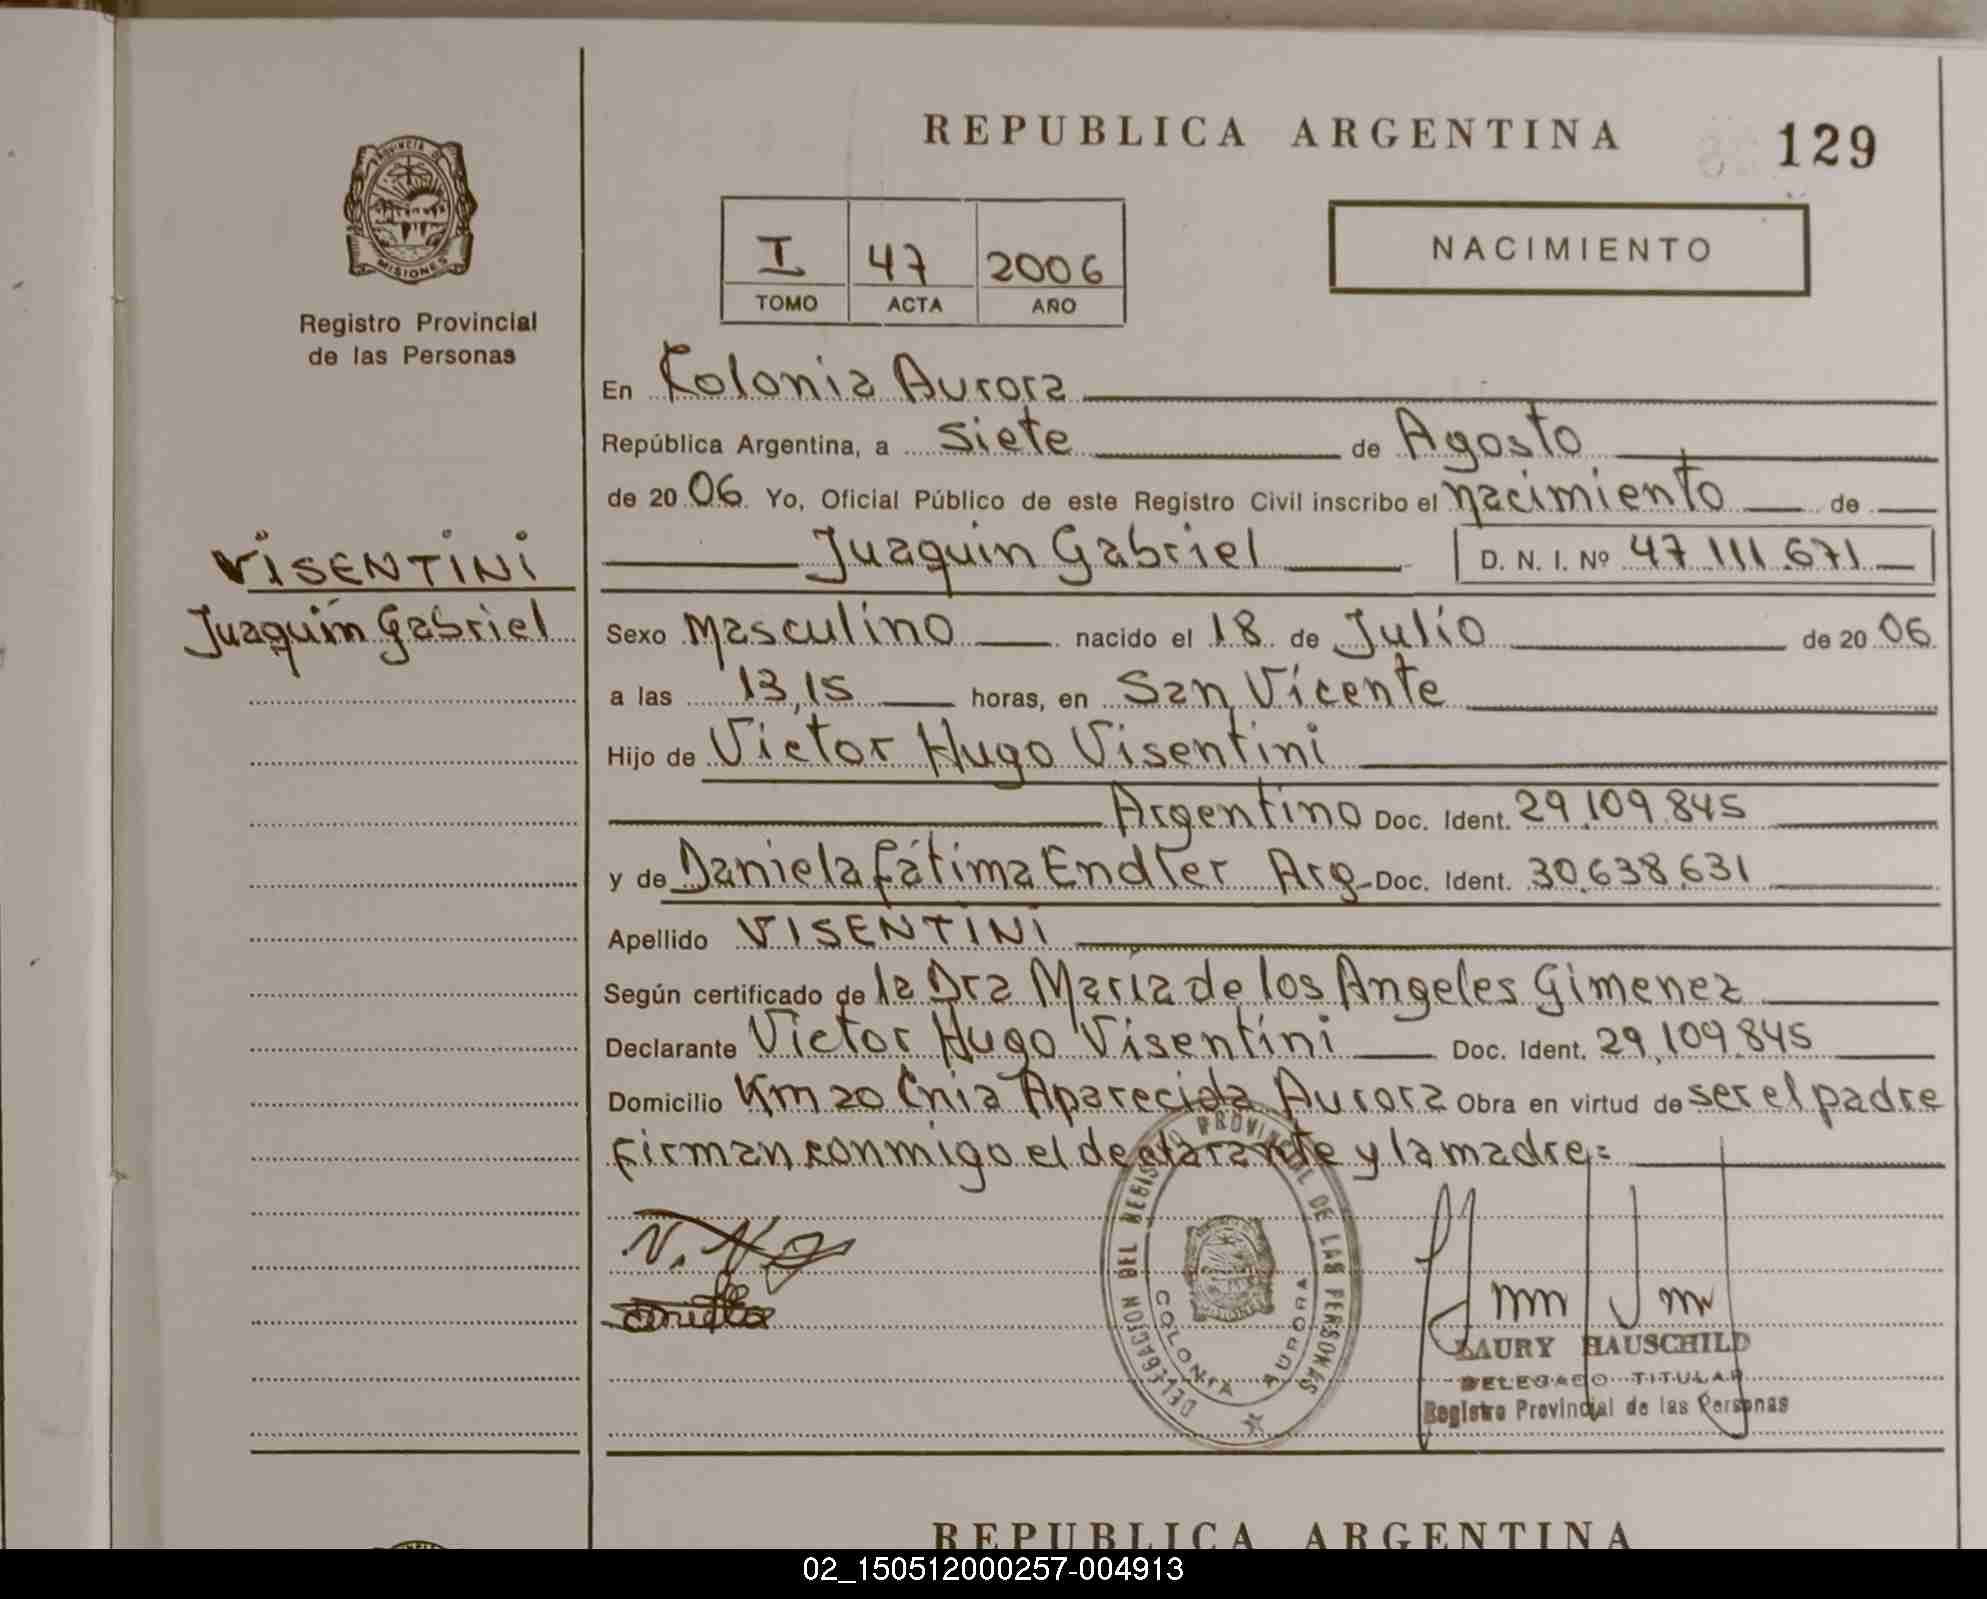 REPUBLICA ARGENTINA
129
PROVINCIA DE
MISIONES
Registro Provincial
de las Personas
I 47 2006
TOMO ACTA AÑO
NACIMIENTO
En Kolonia Aurora
República Argentina, a siete de Agosto
de 20 06 Yo, Oficial Público de este Registro Civil inscribo el nacimiento de
Juaquin Gabriel D. N. I. Nº 47.111.671
VISENTINI
Juaquin Gabriel
Sexo Masculino nacido el 18 de Julio de 20 06
a las 13,15 horas, en San Vicente
Hijo de Victor Hugo Visentini
Argentino Doc. Ident. 29.109.845
y de Daniela Fátima Endler Arg- Doc. Ident. 30.638.631
Apellido VISENTINI
Según certificado de la Dra María de los Angeles Gimenez
Declarante Victor Hugo Visentini Doc. Ident. 29.109.845
Domicilio Km 20 Cnia Aparecida Aurora Obra en virtud de ser el padre
firman conmigo el declarante y la madre=
DELEGACION DEL REGISTRO PROVINCIAL DE LAS PERSONAS
COLONIA AURORA
LAURY HAUSCHILD
DELEGADO TITULAR
Registro Provincial de las Personas
REPUBLICA ARGENTINA
02_150512000257-004913